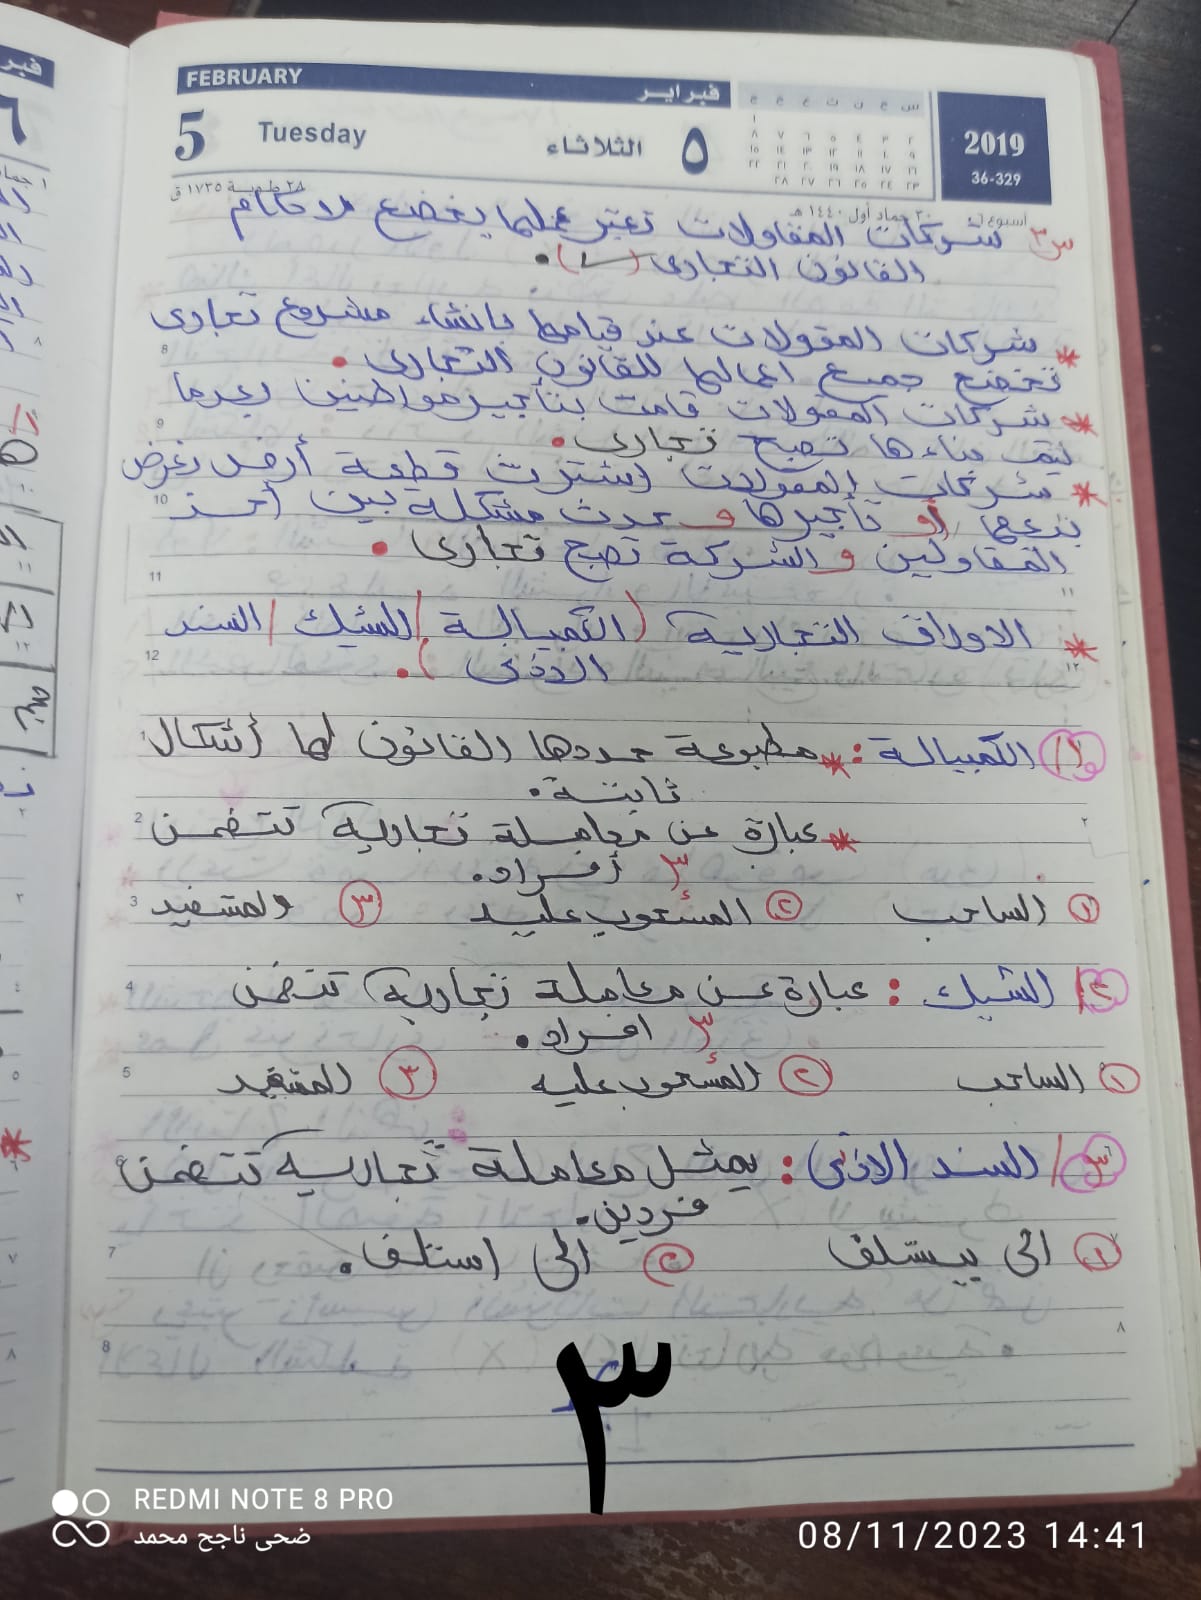 FEBRUARY فبراير
5 Tuesday الثلاثاء ٥
2019
36-329
٢٨ طوبة ١٧٣٥ ق
٣٠ جماد أول ١٤٤٠ هـ
أسبوع ٦
س٣ شركات المقاولات تعتبر عملها يخضع لاحكام
القانون التجارى (✓).
* شركات المقولات عند قيامها بانشاء مشروع تجارى
تخضع جميع اعمالها للقانون التجارى.
* شركات المقولات قامت بتأجير مواطنين بعدما
يتم بناءها تصبح تجارى.
* شركات المقولات اشترت قطعة أرض بغرض
بنعها أو تأجيرها و حدث مشكلة بين أحد
المقاولين و الشركة تصبح تجارى.
* الاوراق التجارية (الكمبيالة / الشيك / السند
الاذنى).
١/ الكمبيالة: * مطبوعة حددها القانون لها أشكال
ثابتة.
* عبارة عن معاملة تجارية تتضمن
٣ أفراد.
١ الساحب ٢ المسحوب عليه ٣ والمستفيد
٢/ الشيك: عبارة عن معاملة تجارية تتضمن
٣ افراد.
١ الساحب ٢ المسحوب عليه ٣ المستفيد
٣/ السند الاذنى: يمثل معاملة تجارية تتضمن
فردين.
١ الى بيستلف ٢ الى استلف.
٣
REDMI NOTE 8 PRO
ضحى ناجح محمد
08/11/2023 14:41